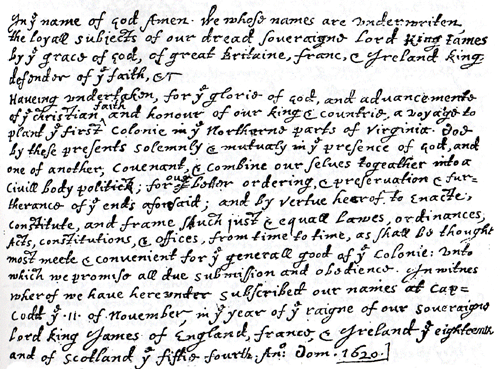 In yͤ name of God Amen. We whose names are underwriten,
the loyall subjects of our dread soveraigne Lord King James
by yͤ grace of God, of great Britaine, franc, & Ireland king,
defender of yͤ faith, &c
Haveing undertaken, for yͤ glorie of God, and advancemente
of yͤ christian faith and honour of our king & countrie, a voyage to
plant yͤ first colonie in yͤ Northerne parts of Virginia. Doe
by these presents solemnly & mutualy in yͤ presence of God, and
one of another, covenant, & combine our selves togeather into a
Civill body politick; for our better ordering, & preservation & fur-
therance of yͤ ends aforesaid; and by vertue hearof, to Enacte,
constitute, and frame shuch just & equall Lawes, ordinances,
Acts, constitutions, & offices, from time to time, as shall be thought
most meete & convenient for yͤ generall good of yͤ Colonie: unto
which we promise all due submission and obedience. In witnes
wherof we have hereunder subscribed our names at Cap-
Codd yͤ .11. of November, in yͤ year of yͤ raigne of our soveraigne
Lord king James of England, france, & Ireland yͤ eighteenth
and of Scotland yͤ fiftie fourth. Anᵒ: Dom. 1620.]